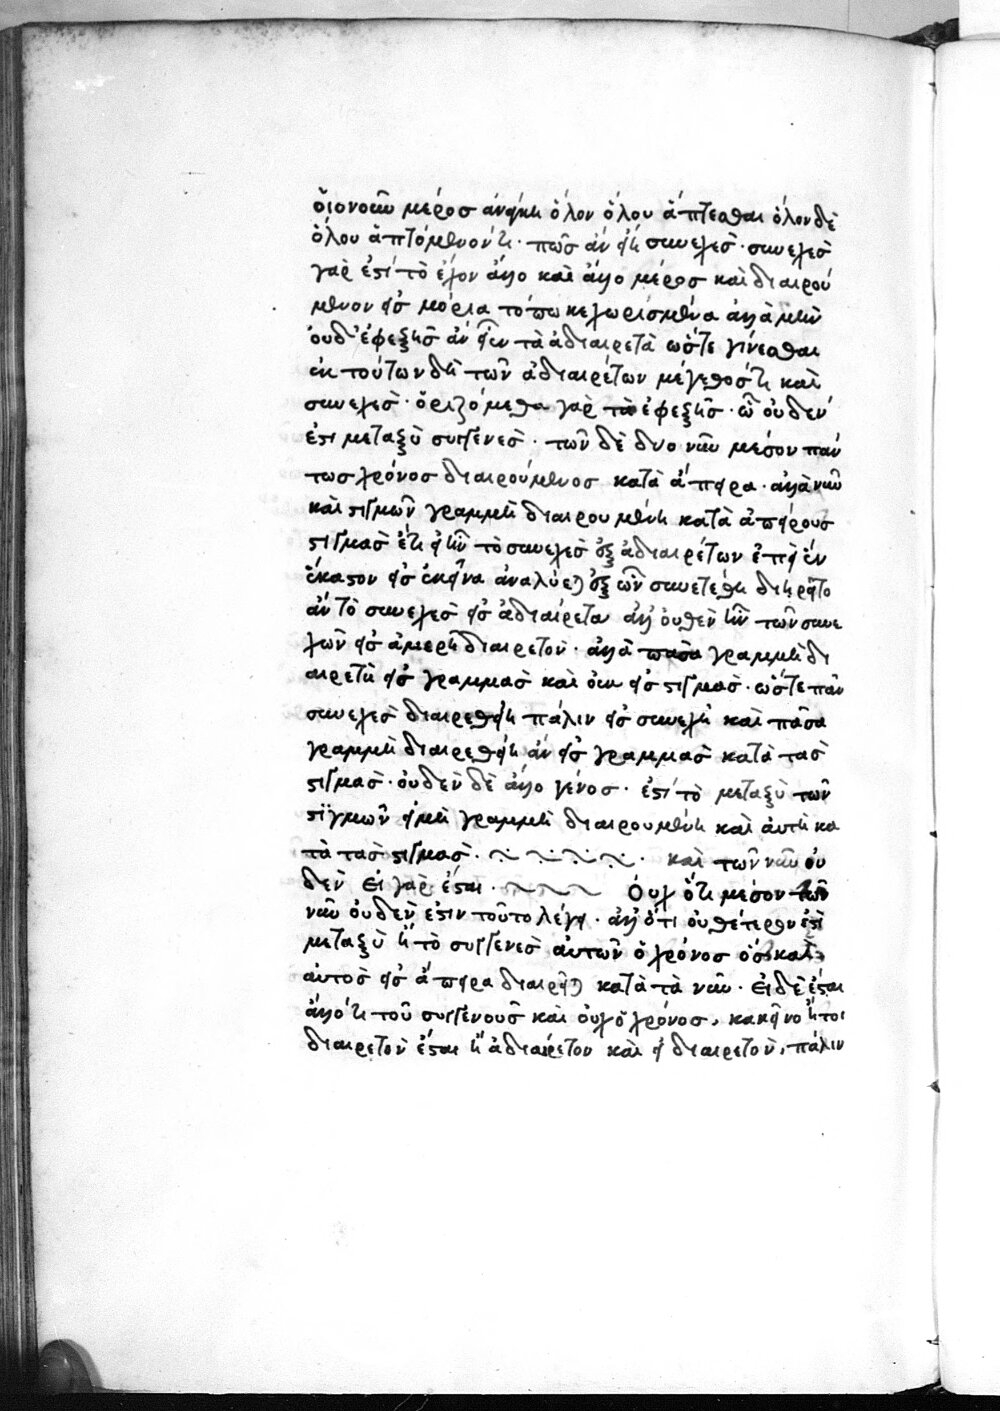 οἱονοῦν μέρος ἀνάγκη ὅλον ὅλου ἅπτεσθαι ὅλον δὲ
ὅλου ἁπτόμενον τί· πῶς ἂν εἴη συνεχές· συνεχὲς
γάρ ἐστὶ τὸ ἔχον ἄλλο καὶ ἄλλο μέρος καὶ διαιρού
μενον εἰς μόρια τόπω κεχωρισμένα ἀλλὰ μὴν
οὐδ' ἐφεξῆς ἂν εἴη τὰ ἀδιαίρετα ὥστε γίνεσθαι
ἐκ τούτων δὴ τῶν ἀδιαιρέτων μέγεθός τι καὶ
συνεχές· ὁριζόμεθα γὰρ τὰ ἐφεξῆς· ὧν οὐδέν
ἐστι μεταξὺ συγγενές· τῶν δὲ δύο νῦν μέσον πάν
τως χρόνος διαιρούμενος κατὰ ἄπειρα· ἀλλὰ νῦν
καὶ στιγμῶν γραμμὴ διαιρουμένη κατὰ ἀπείρους
στιγμάς ἔτι εἰ ἦν τὸ συνεχὲς ἐξ ἀδιαιρέτων ἐπεὶ ἓν
ἕκαστον εἰς ἐκεῖνα ἀναλύεται ἐξ ὧν συνετέθη διῄρητο
ἂν τὸ συνεχὲς εἰς ἀδιαίρετα ἀλλ' οὐθὲν ἦν τῶν συνε
χῶν εἰς ἀμερῆ διαιρετόν· ἀλλὰ πᾶσα γραμμὴ δι
αιρετὴ εἰς γραμμὰς καὶ οὐκ εἰς στιγμάς· ὥστε πᾶν
συνεχὲς διαιρεθείη πάλιν εἰς συνεχῆ καὶ πᾶσα
γραμμὴ διαιρεθείη ἂν εἰς γραμμὰς κατὰ τὰς
στιγμάς· οὐδὲν δὲ ἄλλο γένος· ἐστὶ τὸ μεταξὺ τῶν
στιγμῶν εἰ μὴ γραμμὴ διαιρουμένη καὶ αὐτὴ κα
τὰ τὰς στιγμάς· καὶ τῶν νῦν οὐ
δέν εἰ γὰρ ἔσται· Οὐχ ὅτι μέσον τῶν
νῦν οὐδέν ἐστιν τοῦτο λέγει· ἀλλ' ὅτι οὐθέτερόν ἐστι
μεταξὺ ἢ τὸ συγγενὲς αὐτῶν ὁ χρόνος ὃς καὶ
αὐτὸς εἰς ἄπειρα διαιρεῖται κατὰ τὰ νῦν· εἰ δὲ ἔσται
ἄλλό τι τοῦ συγγενοῦς καὶ οὐχ ὁ χρόνος, κακεῖνο ἤτοι
διαιρετὸν ἔσται ἢ ἀδιαίρετον καὶ εἰ διαιρετόν, πάλιν